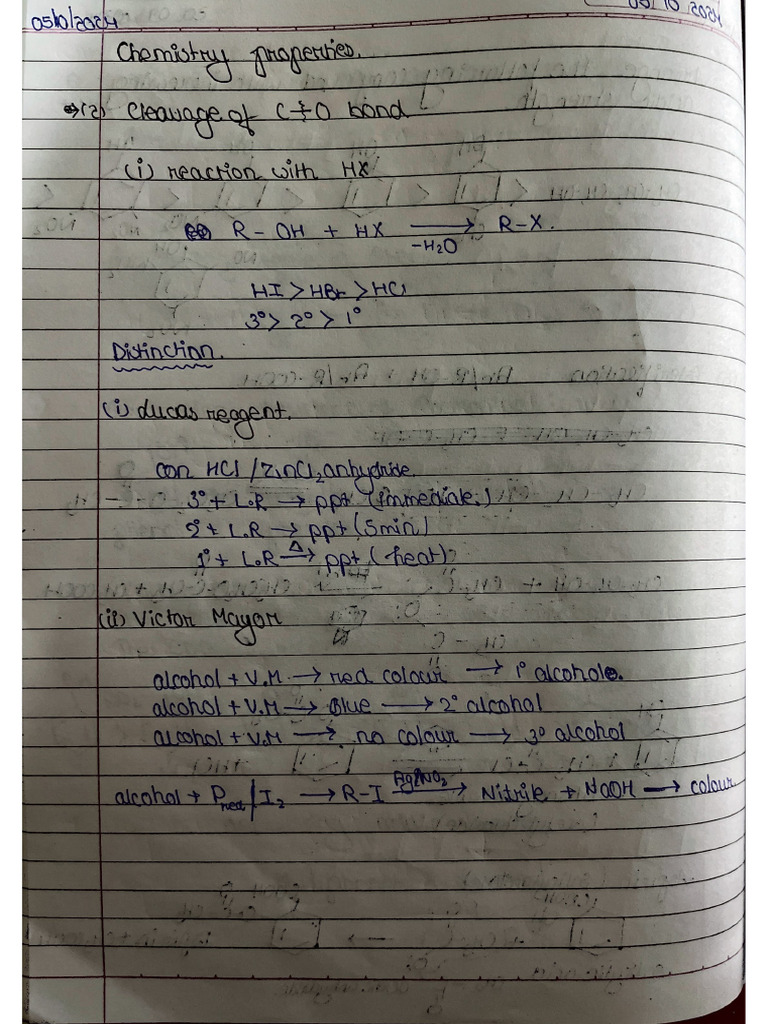 05/10/2024
05/10/2024
Chemistry properties.
→(2) Cleavage of C-O bond
(i) reaction with HX
R-OH + HX → R-X.
-H2O
HI > HBr > HCl
3° > 2° > 1°
Distinction.
(i) Lucas reagent.
con HCl / ZnCl2 anhydride
3° + L.R → ppt (immediate.)
2° + L.R → ppt (5min)
1° + L.R →Δ ppt (heat)
(ii) Victor Mayor
alcohol + V.M → red colour → 1° alcohol.
alcohol + V.M → Blue → 2° alcohol
alcohol + V.M → no colour → 3° alcohol
alcohol + Pred / I2 → R-I →AgNO2 Nitrile + NaOH → colour.